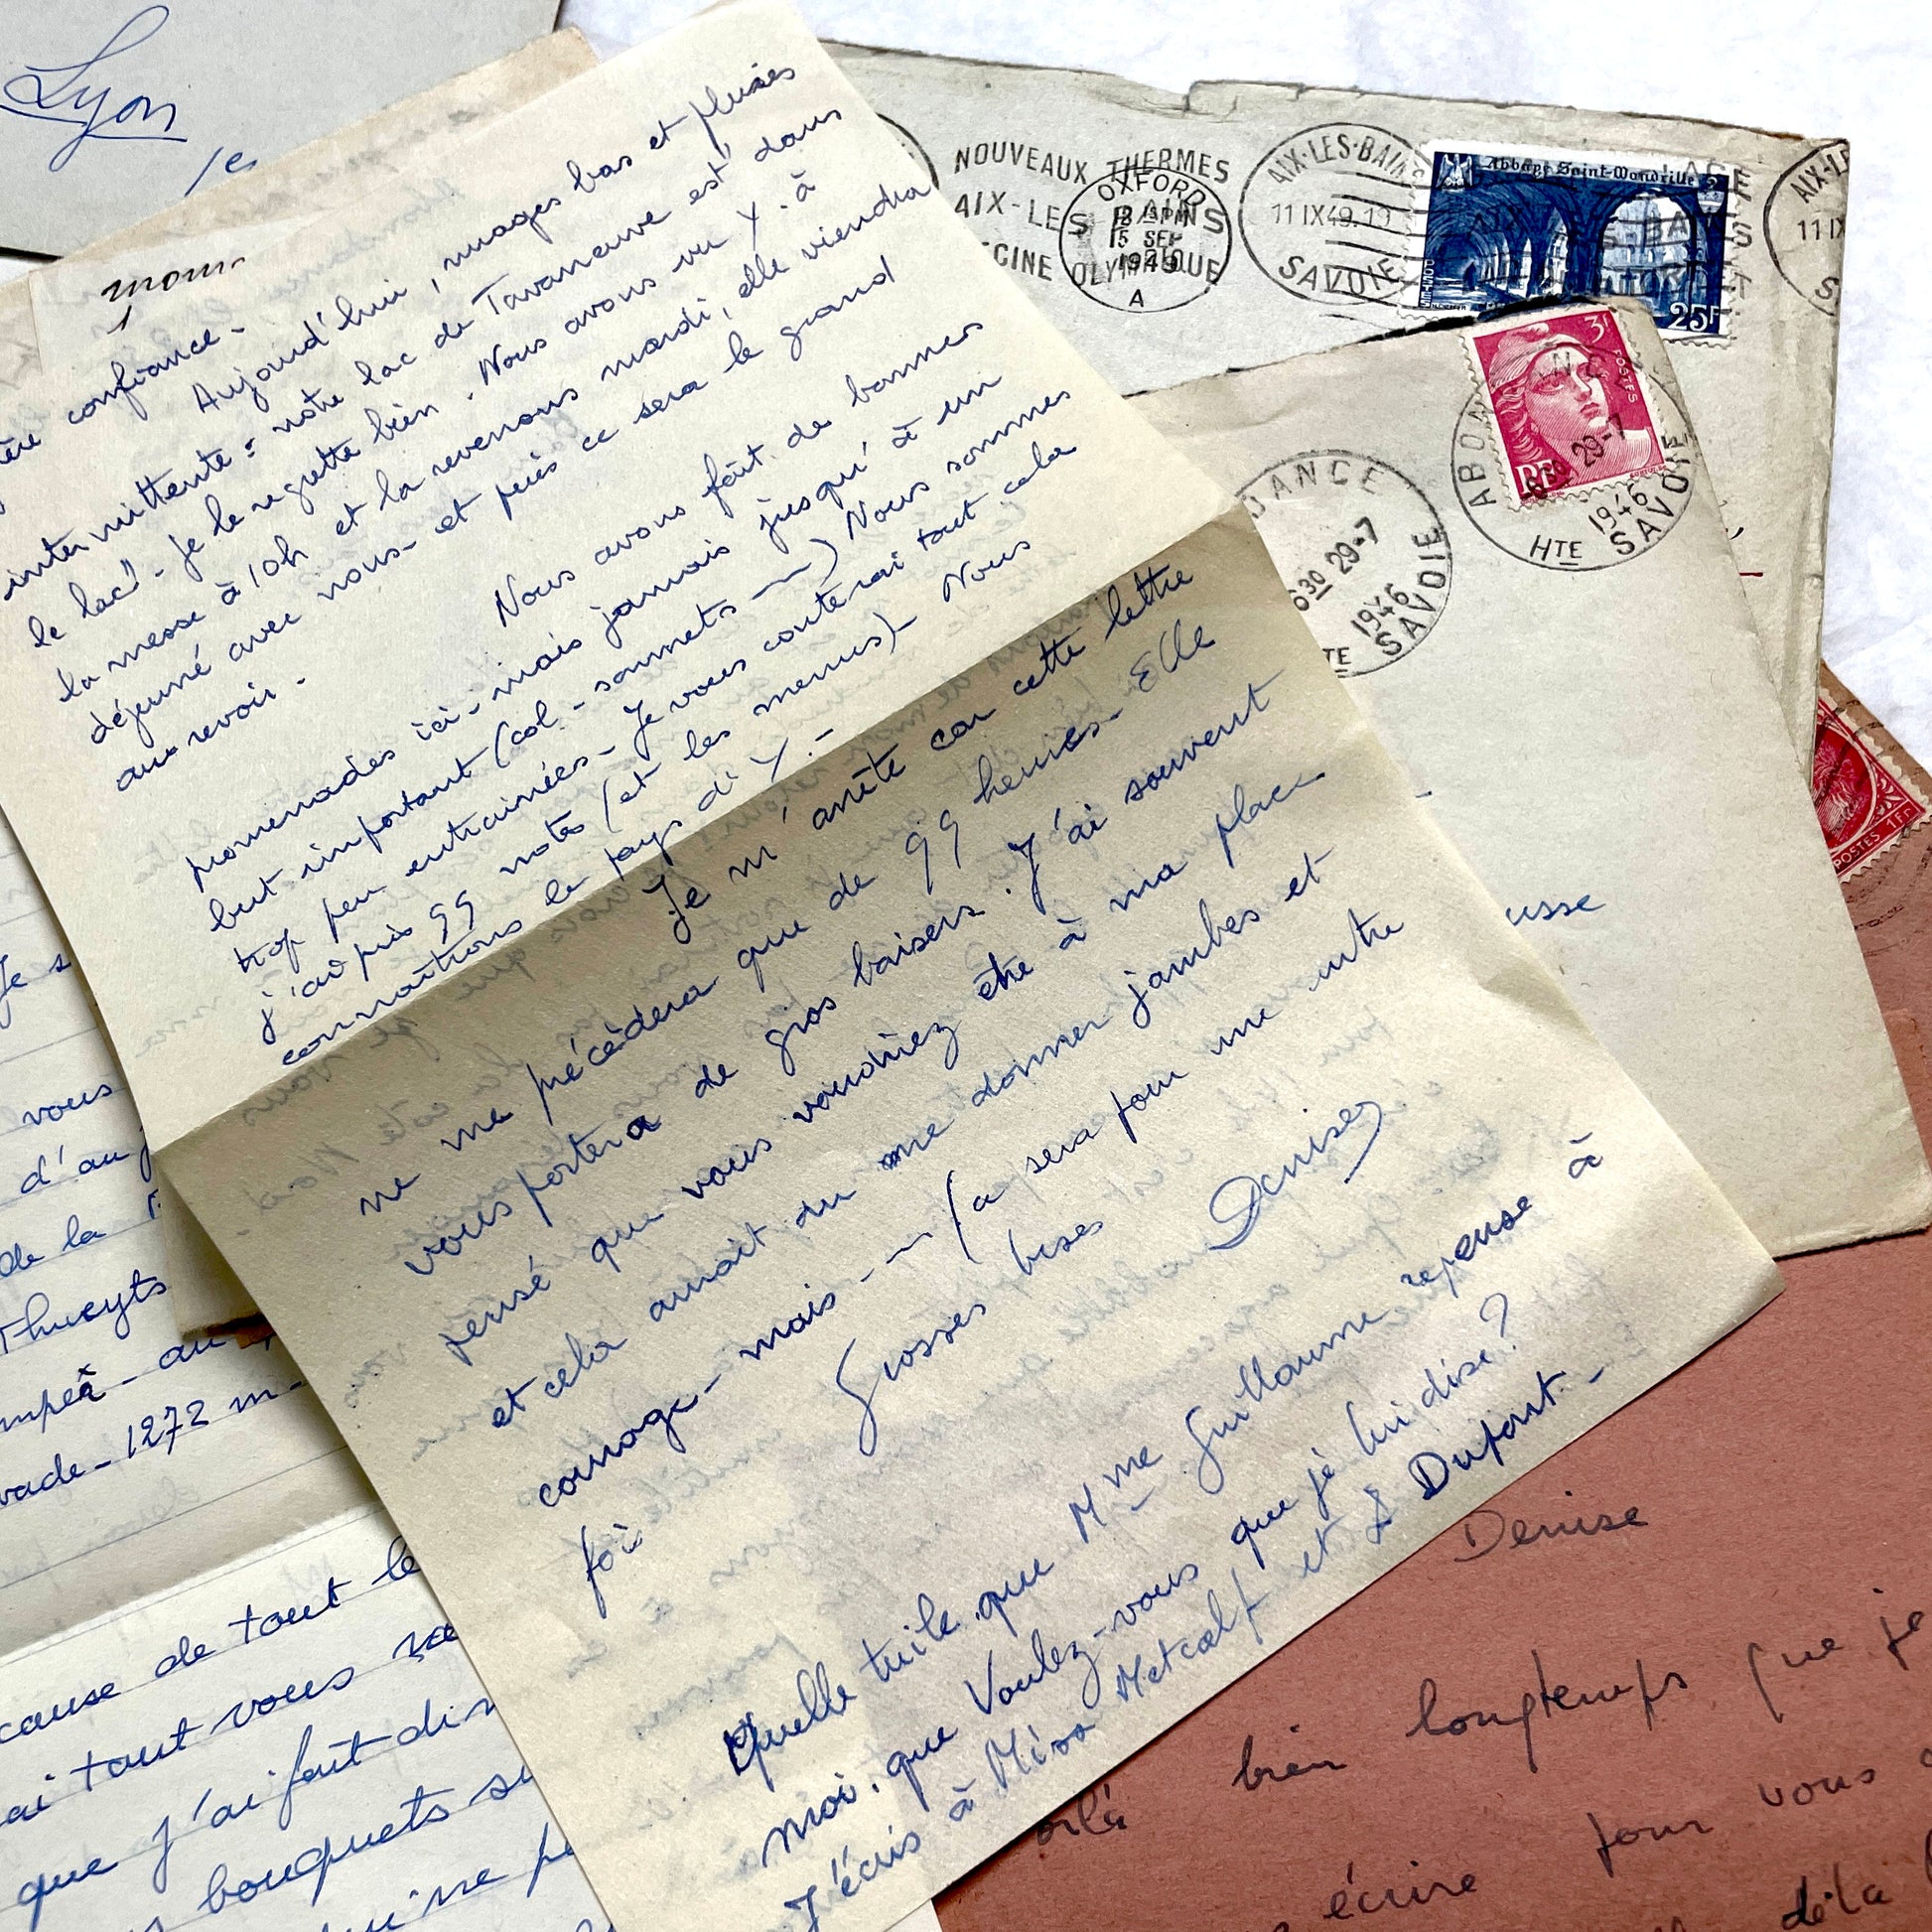 Lyon
le
confiance -
Aujourd'hui, nuages bas et pluies
intermittente = notre lac de Tavaneuve est "dans
le lac" - Je le regrette bien. Nous avons vu Y. à
la messe à 10h et la reverrons mardi, elle viendra
déjeuné avec nous - et puis ce sera le grand
au revoir.
Nous avons fait de bonnes
promenades ici - mais jamais jusqu'à un
but important (col - sommets ---) Nous sommes
trop peu entrainées - Je vous conterai tout cela
j'ai pris qq notes (et les menus) - Nous
connaîtrons le pays d'Y. -
Je m'arrête car cette lettre
ne me précèdera que de qq heures - Elle
vous portera de gros baisers. J'ai souvent
pensé que vous voudriez être à ma place
et cela aurait du me donner jambes et
courage - mais --- ça sera pour une autre
fois
Grosses bises Denise
Quelle tuile que Mme Guillaume repense à
moi. que Voulez-vous que je lui dise?
J'écris à Miss Metcalf et à Dupont -
NOUVEAUX THERMES
AIX-LES BAINS
CINE OLYMPIQUE
OXFORD
15 SEP
1949
A
AIX-LES-BAINS
11 IX 49
SAVOIE
Abbaye Saint-Wandrille
25F
AIX-LE
11 IX
S
3F
POSTES
RF
ABON
29-7
1946
HTE SAVOIE
DANCE
6 30 29-7
1946
TE SAVOIE
POSTES 1F
usse
Je s
vous
d'au
de la
Thueyts
au
vade - 1272 m -
cause de tout le
ai tout vous
que j'ai fait
bouquets su
Denise
oilà bien longtemps que je
écrire pour vous
delà